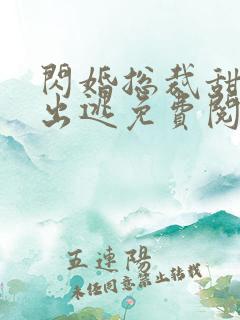 閃婚總裁甜
出逃免費閱
五連陽
未经同意禁止转载